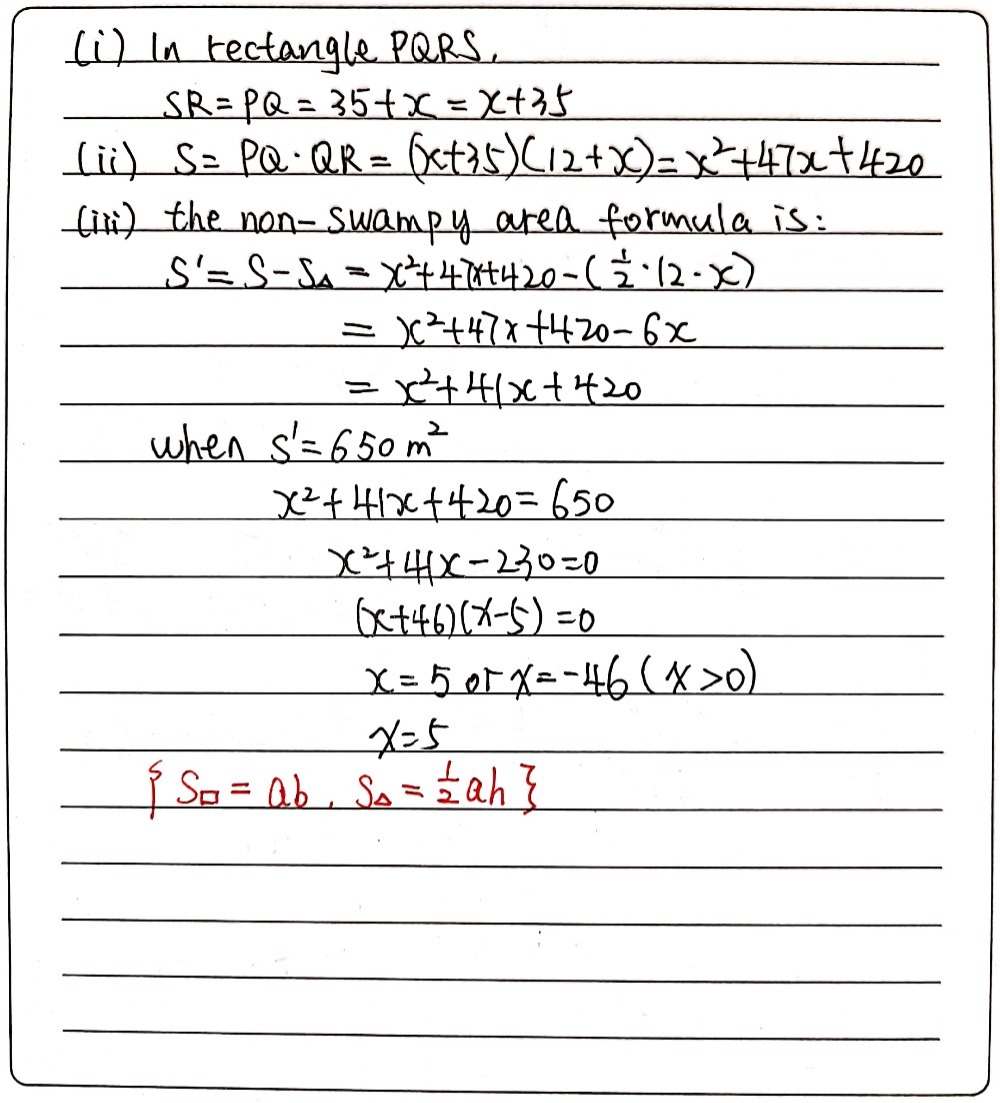 (i) In rectangle PQRS,
SR = PQ = 35 + x = x + 35
(ii) S = PQ · QR = (x+35)(12+x) = x² + 47x + 420
(iii) the non-swampy area formula is:
S' = S - S△ = x² + 47x + 420 - (½ · 12 · x)
= x² + 47x + 420 - 6x
= x² + 41x + 420
when S' = 650 m²
x² + 41x + 420 = 650
x² + 41x - 230 = 0
(x+46)(x-5) = 0
x = 5 or x = -46 (x > 0)
x = 5
{ S□ = ab, S△ = ½ah }